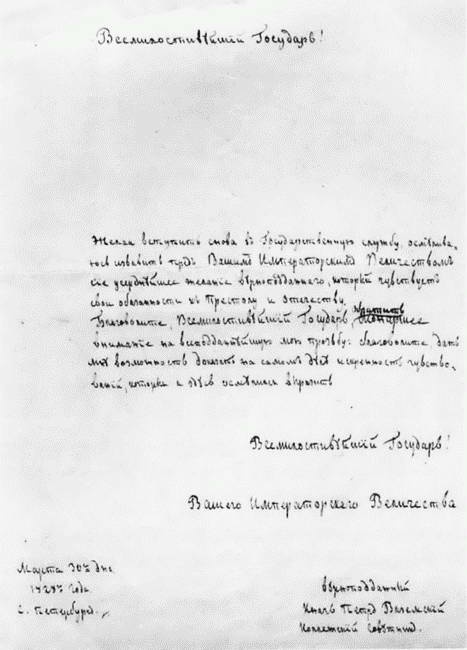 Всемилостивѣйшій Государь!
Желая вступить снова въ Государственную службу, осмѣлива-
юсь изъявить предъ Вашимъ Императорскимъ Величествомъ
сіе усерднѣйшее желаніе вѣрноподданнаго, который чувствуетъ
свои обязанности къ Престолу и отечеству.
Благоволите, Всемилостивѣйшій Государь, обратить Монаршее
вниманіе на всеподданнѣйшую мою прозьбу: благоволите дать
мнѣ возможность доказать на самомъ дѣлѣ искренность чувство-
ваній, которыя я здѣсь осмѣлился выразить
Всемилостивѣйшій Государь!
Вашего Императорскаго Величества
Марта 30го дня
года
С. Петербургъ.
вѣрноподданный
Князь Петръ Вяземскій
Коллежскій Совѣтникъ.